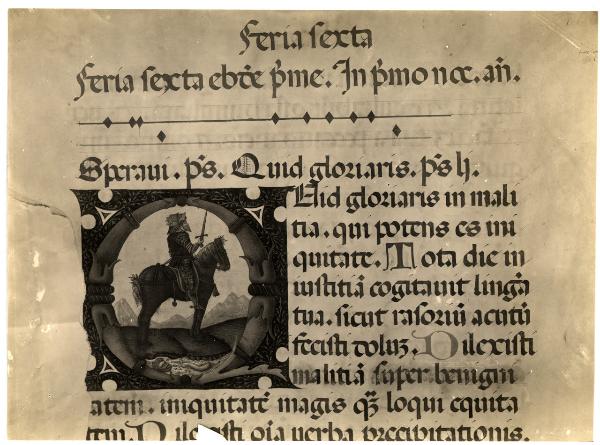 Feria sexta
Feria sexta ebđe p̃me. In p̃mo noc. an̄.
Speraui. p̃s. Quid gloriaris. p̃s lj.
QUid gloriaris in mali
tia. qui potens es ini
quitate. Tota die in
iustitiā cogitauit lingā
tua. sicut rasoriū acutū
fecisti doluʒ. Dilexisti
malitiā super benigni
atem. iniquitatē magis q̄ʒ loqui equita
tem. Dilexisti oīa uerba precibitationis.